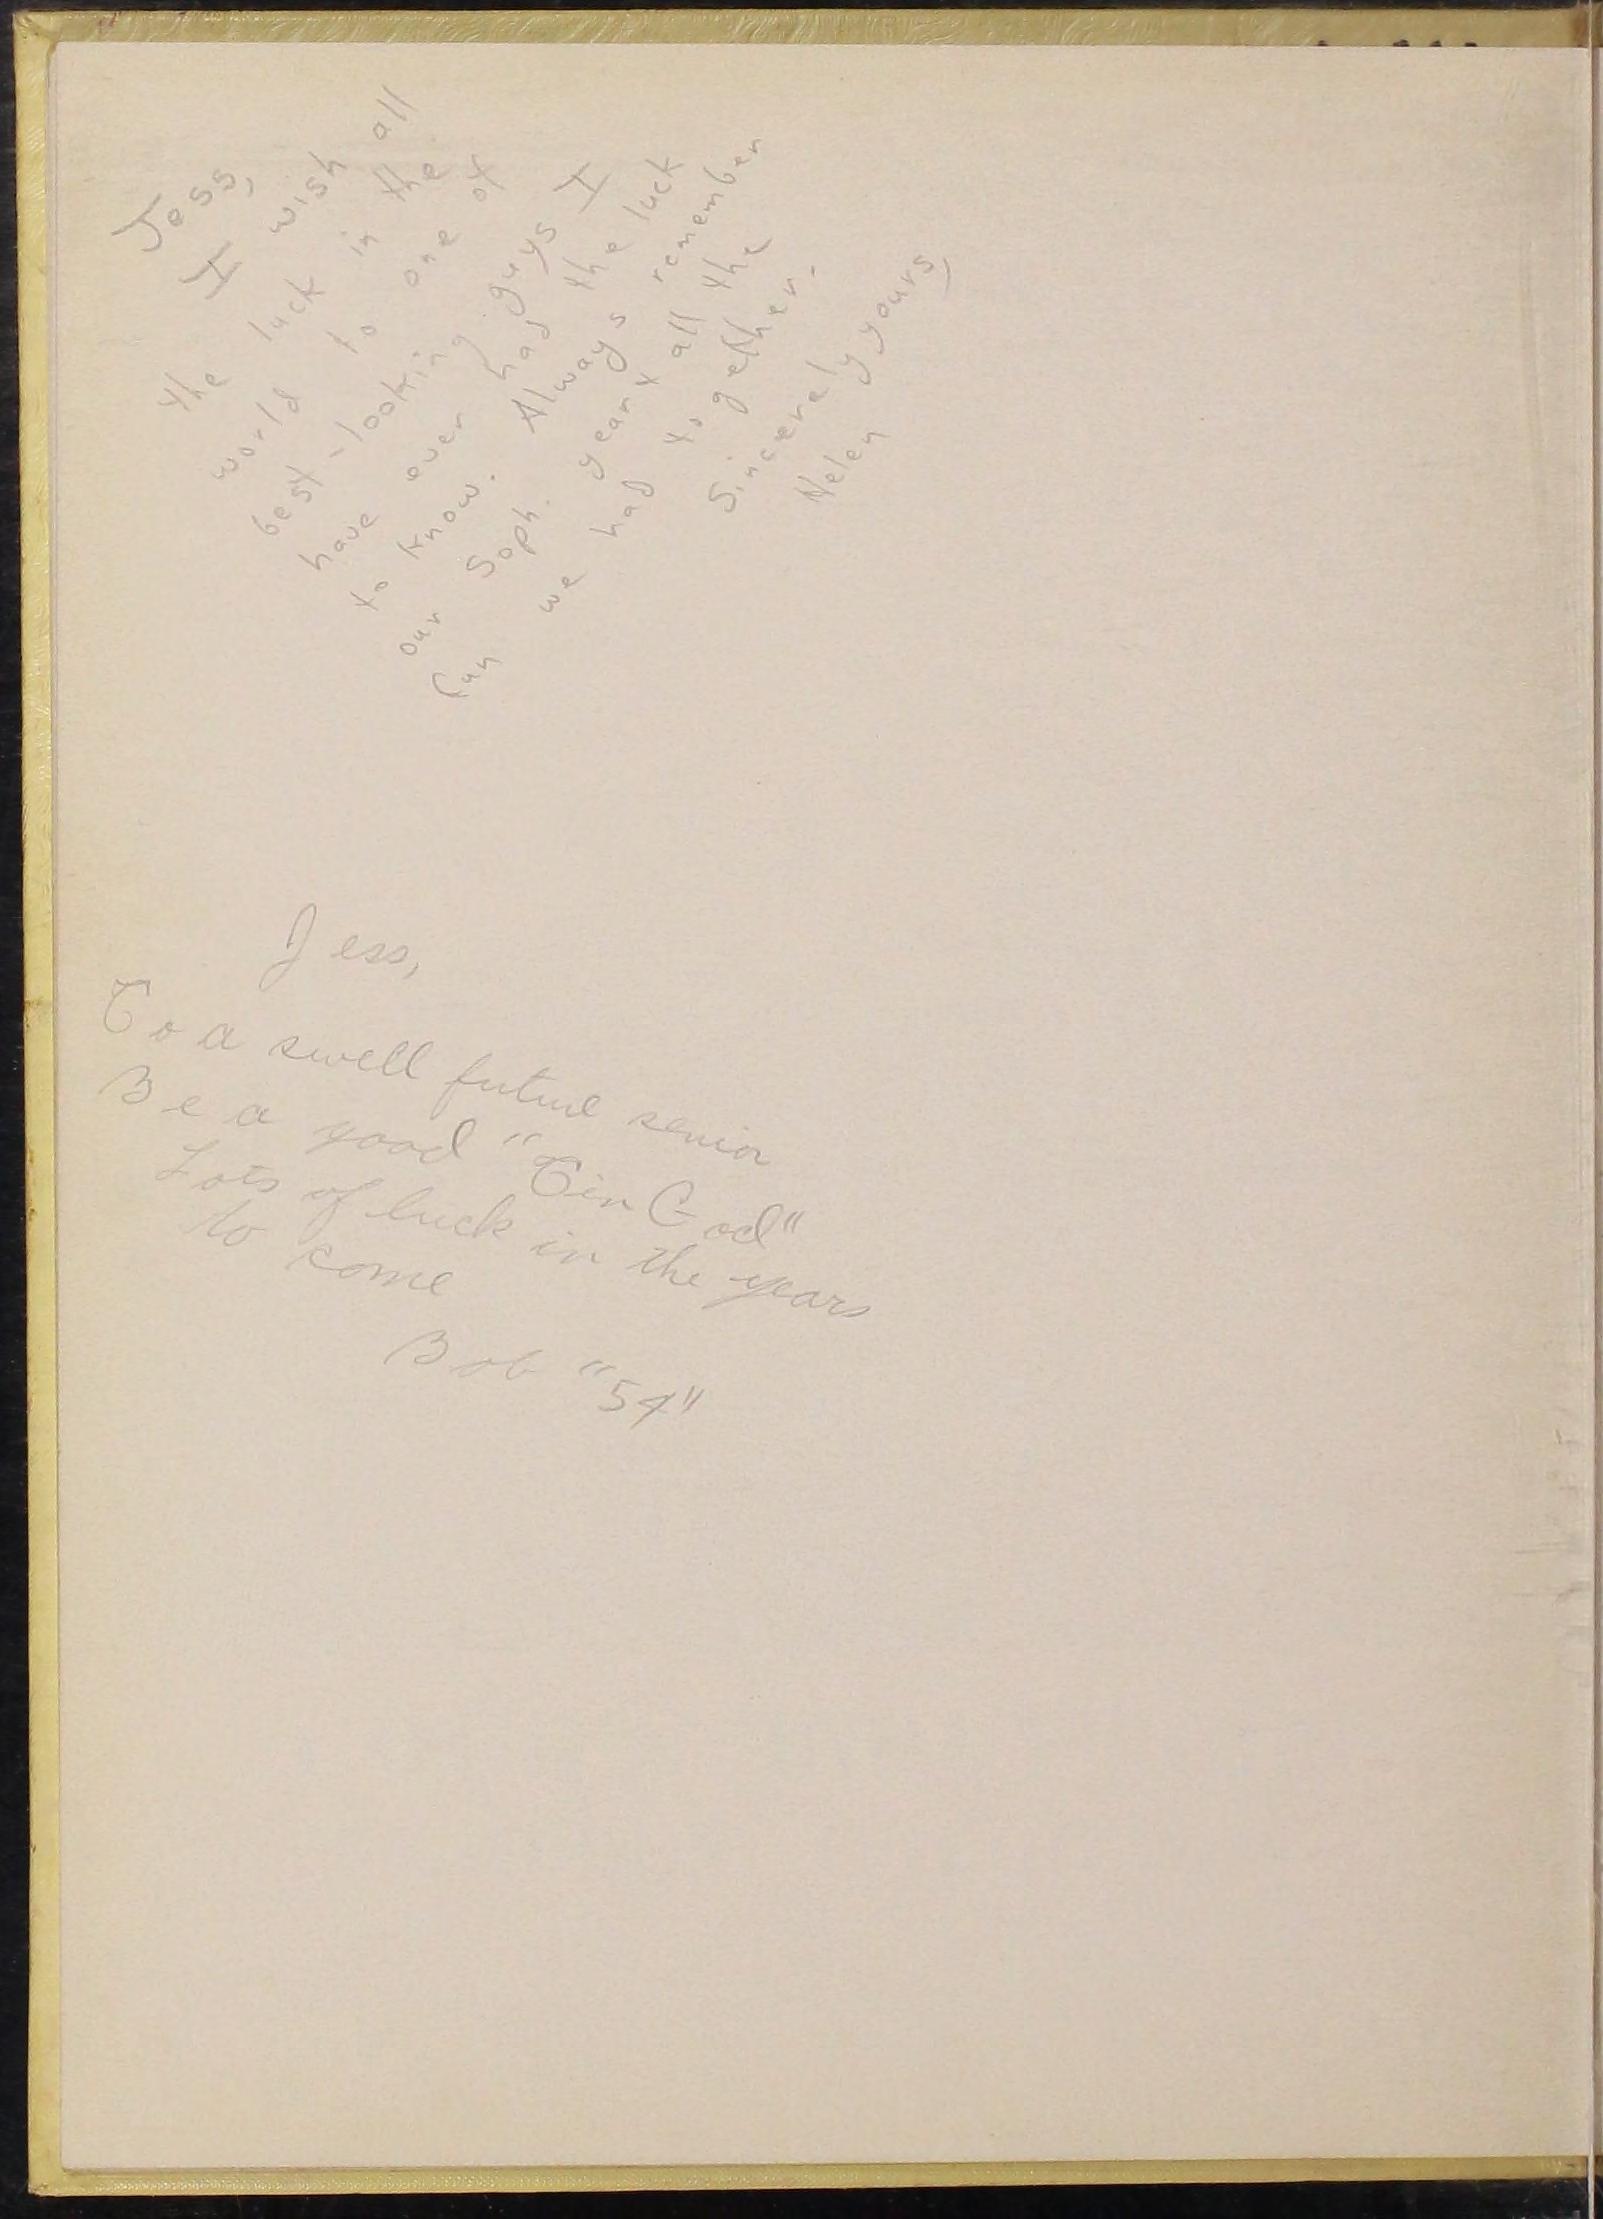 Jess,
I wish all
the luck in the
world to one of
best-looking guys I
have ever had the luck
to know. Always remember
our Soph. year & all the
fun we had together.
Sincerely yours,
Helen
Jess,
To a swell future senior
Be a good "Tin God"
Lots of luck in the years
to come
Bob "54"